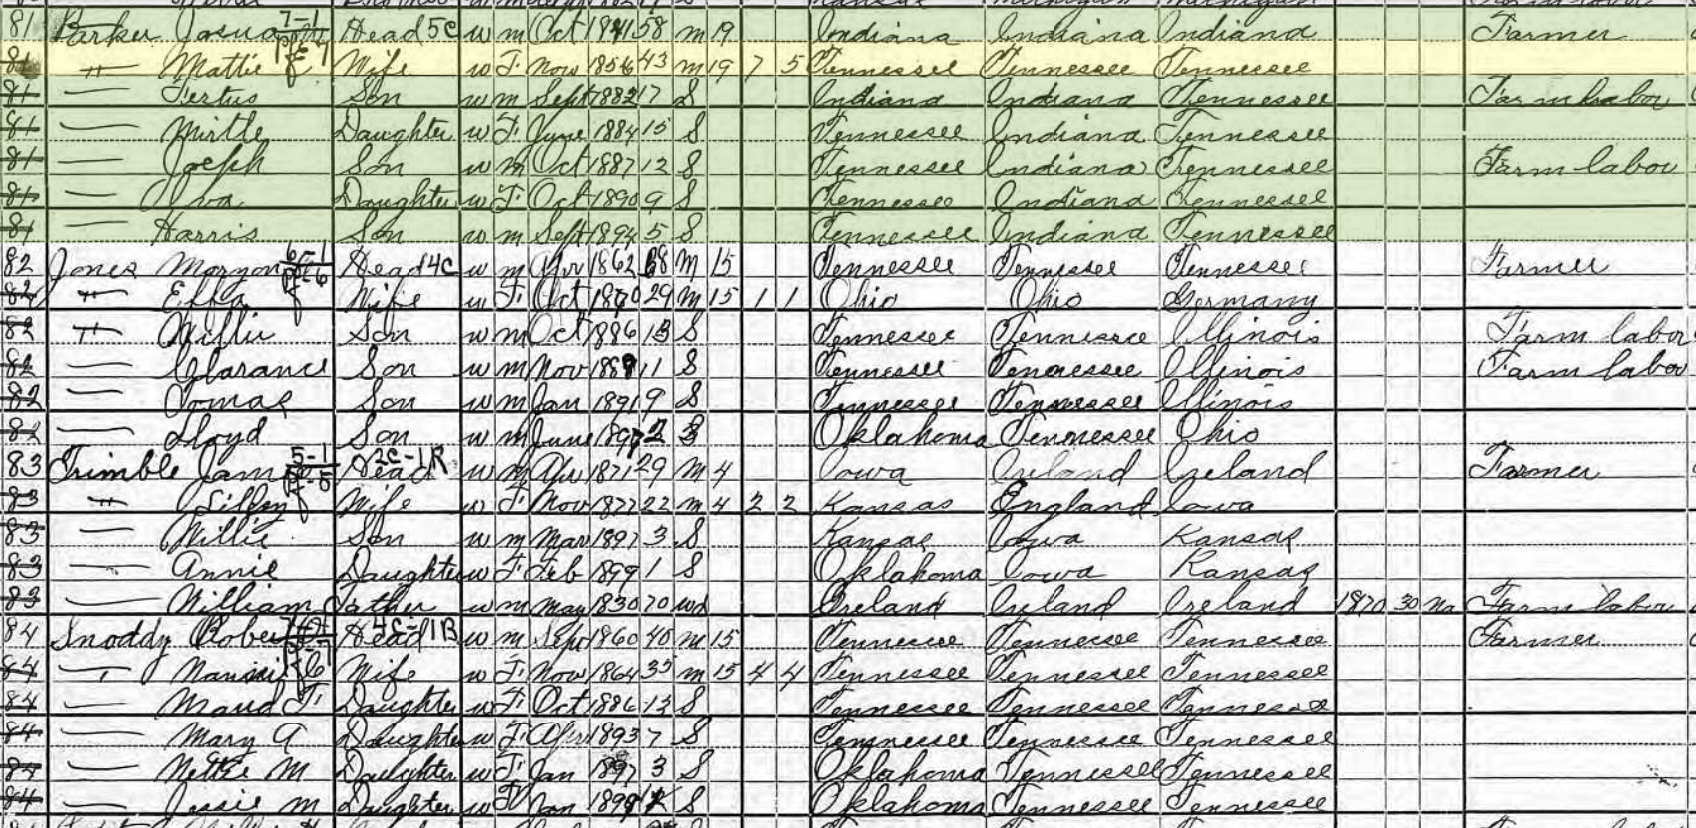 81 Parker Josua 7-1 Head 5C w m Oct 1841 58 m 19 Indiana Indiana Indiana Farmer
81 " Mattie E Wife w F Nov 1856 43 m 19 7 5 Tennessee Tennessee Tennessee
81 — Tertus Son w m Sept 1882 17 S Indiana Indiana Tennessee Farm labor
81 — Mirtle Daughter w F June 1884 15 S Tennessee Indiana Tennessee
81 — Joeph Son w m Oct 1887 12 S Tennessee Indiana Tennessee Farm labor
81 — Ova Daughter w F Oct 1890 9 S Tennessee Indiana Tennessee
81 — Harris Son w m Sept 1894 5 S Tennessee Indiana Tennessee
82 Jones Morgon 6-1 Head 4C w m Apr 1862 38 M 15 Tennessee Tennessee Tennessee Farmer
82 " Effa Wife w F Oct 1870 29 M 15 1 1 Ohio Ohio Germany
82 " Willie Son w m Oct 1886 13 S Tennessee Tennessee Illinois Farm labor
82 — Clarance Son w m Nov 1889 11 S Tennessee Tennessee Illinois Farm labor
82 — Tomas Son w m Jan 1891 9 S Tennessee Tennessee Illinois
82 — Lloyd Son w m June 1897 2 S Oklahoma Tennessee Ohio
83 Trimble James 5-1 Head 2C-1R w m Apr 1871 29 M 4 Iowa Ireland Ireland Farmer
83 " Lilley Wife w F Nov 1877 22 m 4 2 2 Kansas England Iowa
83 — Willie Son w m Mar 1897 3 S Kansas Iowa Kansas
83 — Annie Daughter w F Feb 1899 1 S Oklahoma Iowa Kansas
83 — William Father w m May 1830 70 wd Ireland Ireland Ireland 1870 30 Na Farm labor
84 Snoddy Robert Head 4C-1B w m Sept 1860 40 m 15 Tennessee Tennessee Tennessee Farmer
84 " Wife w F Nov 1864 35 m 15 4 4 Tennessee Tennessee Tennessee
84 — Maud F Daughter w F Oct 1886 13 S Tennessee Tennessee Tennessee
84 — Mary A Daughter w F Apr 1893 7 S Tennessee Tennessee Tennessee
84 — Nettie M Daughter w F Jan 1897 3 S Oklahoma Tennessee Tennessee
84 — Jessie M Daughter w F Jan S Oklahoma Tennessee Tennessee